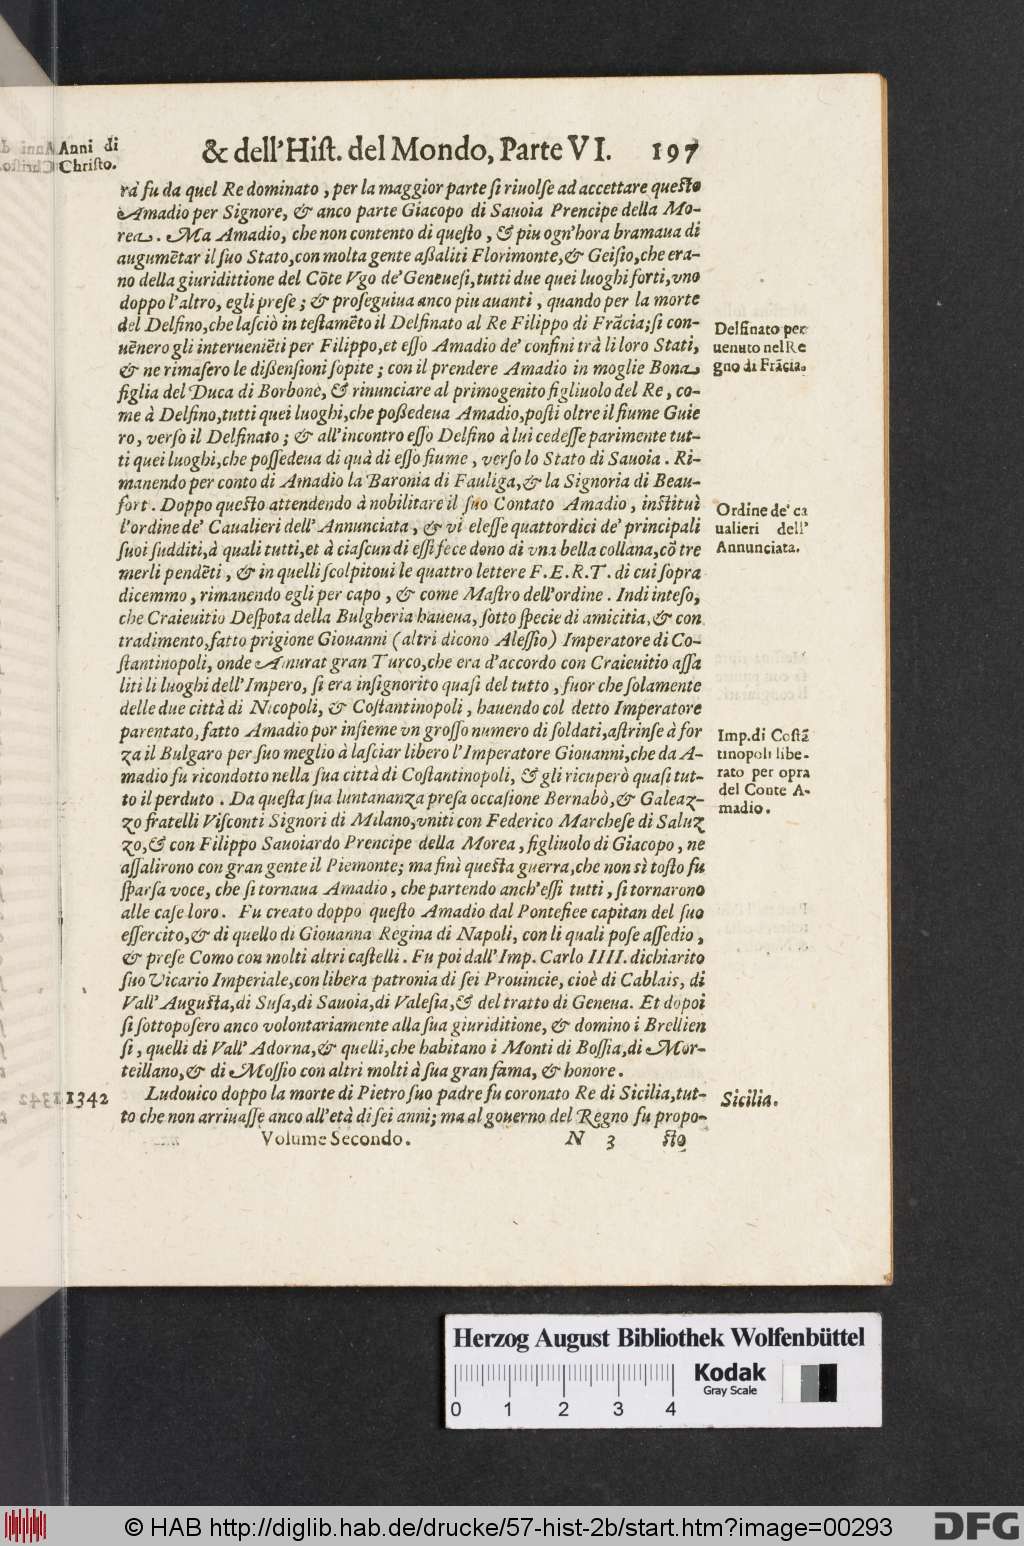 Anni di
Christo.
& dell'Hist. del Mondo, Parte VI. 197
rà fu da quel Re dominato, per la maggior parte si riuolse ad accettare questo
Amadio per Signore, & anco parte Giacopo di Sauoia Prencipe della Mo-
rea. Ma Amadio, che non contento di questo, & piu ogn'hora bramaua di
augumẽtar il suo Stato, con molta gente aßaliti Florimonte, & Geisio, che era-
no della giuridittione del Cõte Vgo de' Geneuesi, tutti due quei luoghi forti, vno
doppo l'altro, egli prese; & proseguiua anco piu auanti, quando per la morte
del Delfino, che lasciò in testamẽto il Delfinato al Re Filippo di Frãcia; si con-
uẽnero gli interueniẽti per Filippo, et esso Amadio de' confini trà li loro Stati,
& ne rimasero le dißensioni sopite; con il prendere Amadio in moglie Bona
figlia del Duca di Borbone, & rinunciare al primogenito figliuolo del Re, co-
me à Delfino, tutti quei luoghi, che poßedeua Amadio, posti oltre il fiume Guie
ro, verso il Delfinato; & all'incontro esso Delfino à lui cedesse parimente tut-
ti quei luoghi, che possedeua di quà di esso fiume, verso lo Stato di Sauoia. Ri-
manendo per conto di Amadio la Baronia di Fauliga, & la Signoria di Beau-
fort. Doppo questo attendendo à nobilitare il suo Contato Amadio, instituì
l'ordine de' Caualieri dell'Annunciata, & vi elesse quattordici de' principali
suoi sudditi, à quali tutti, et à ciascun di essi fece dono di vna bella collana, cõ tre
merli pendẽti, & in quelli scolpitoui le quattro lettere F.E.R.T. di cui sopra
dicemmo, rimanendo egli per capo, & come Mastro dell'ordine. Indi inteso,
che Craieuitio Despota della Bulgheria haueua, sotto specie di amicitia, & con
tradimento, fatto prigione Giouanni (altri dicono Alessio) Imperatore di Co-
stantinopoli, onde Amurat gran Turco, che era d'accordo con Craieuitio assa
liti li luoghi dell'Impero, si era insignorito quasi del tutto, fuor che solamente
delle due città di Nicopoli, & Costantinopoli, hauendo col detto Imperatore
parentato, fatto Amadio por insieme vn grosso numero di soldati, astrinse à for
za il Bulgaro per suo meglio à lasciar libero l'Imperatore Giouanni, che da A-
madio fu ricondotto nella sua città di Costantinopoli, & gli ricuperò quasi tut-
to il perduto. Da questa sua luntananza presa occasione Bernabò, & Galeaz-
zo fratelli Visconti Signori di Milano, vniti con Federico Marchese di Saluz
zo, & con Filippo Sauoiardo Prencipe della Morea, figliuolo di Giacopo, ne
assalirono con gran gente il Piemonte; ma finì questa guerra, che non sì tosto fu
sparsa voce, che si tornaua Amadio, che partendo anch'essi tutti, si tornarono
alle case loro. Fu creato doppo questo Amadio dal Pontefiee capitan del suo
essercito, & di quello di Giouanna Regina di Napoli, con li quali pose assedio,
& prese Como con molti altri castelli. Fu poi dall'Imp. Carlo IIII. dichiarito
suo Vicario Imperiale, con libera patronia di sei Prouincie, cioè di Cablais, di
Vall'Augusta, di Susa, di Sauoia, di Valesia, & del tratto di Geneua. Et dopoi
si sottoposero anco volontariamente alla sua giuriditione, & domino i Brellien
si, quelli di Vall'Adorna, & quelli, che habitano i Monti di Bossia, di Mor-
teillano, & di Mossio con altri molti à sua gran fama, & honore.
1342 Ludouico doppo la morte di Pietro suo padre fu coronato Re di Sicilia, tut-
to che non arriuasse anco all'età di sei anni; ma al gouerno del Regno fu propo-
Volume Secondo. N 3 sto
Delfinato per
uenuto nel Re
gno di Frãcia.
Ordine de' ca
ualieri dell'
Annunciata.
Imp. di Costã
tinopoli libe-
rato per opra
del Conte A-
madio.
Sicilia.
Herzog August Bibliothek Wolfenbüttel
Kodak
Gray Scale
0 1 2 3 4
© HAB http://diglib.hab.de/drucke/57-hist-2b/start.htm?image=00293
DFG